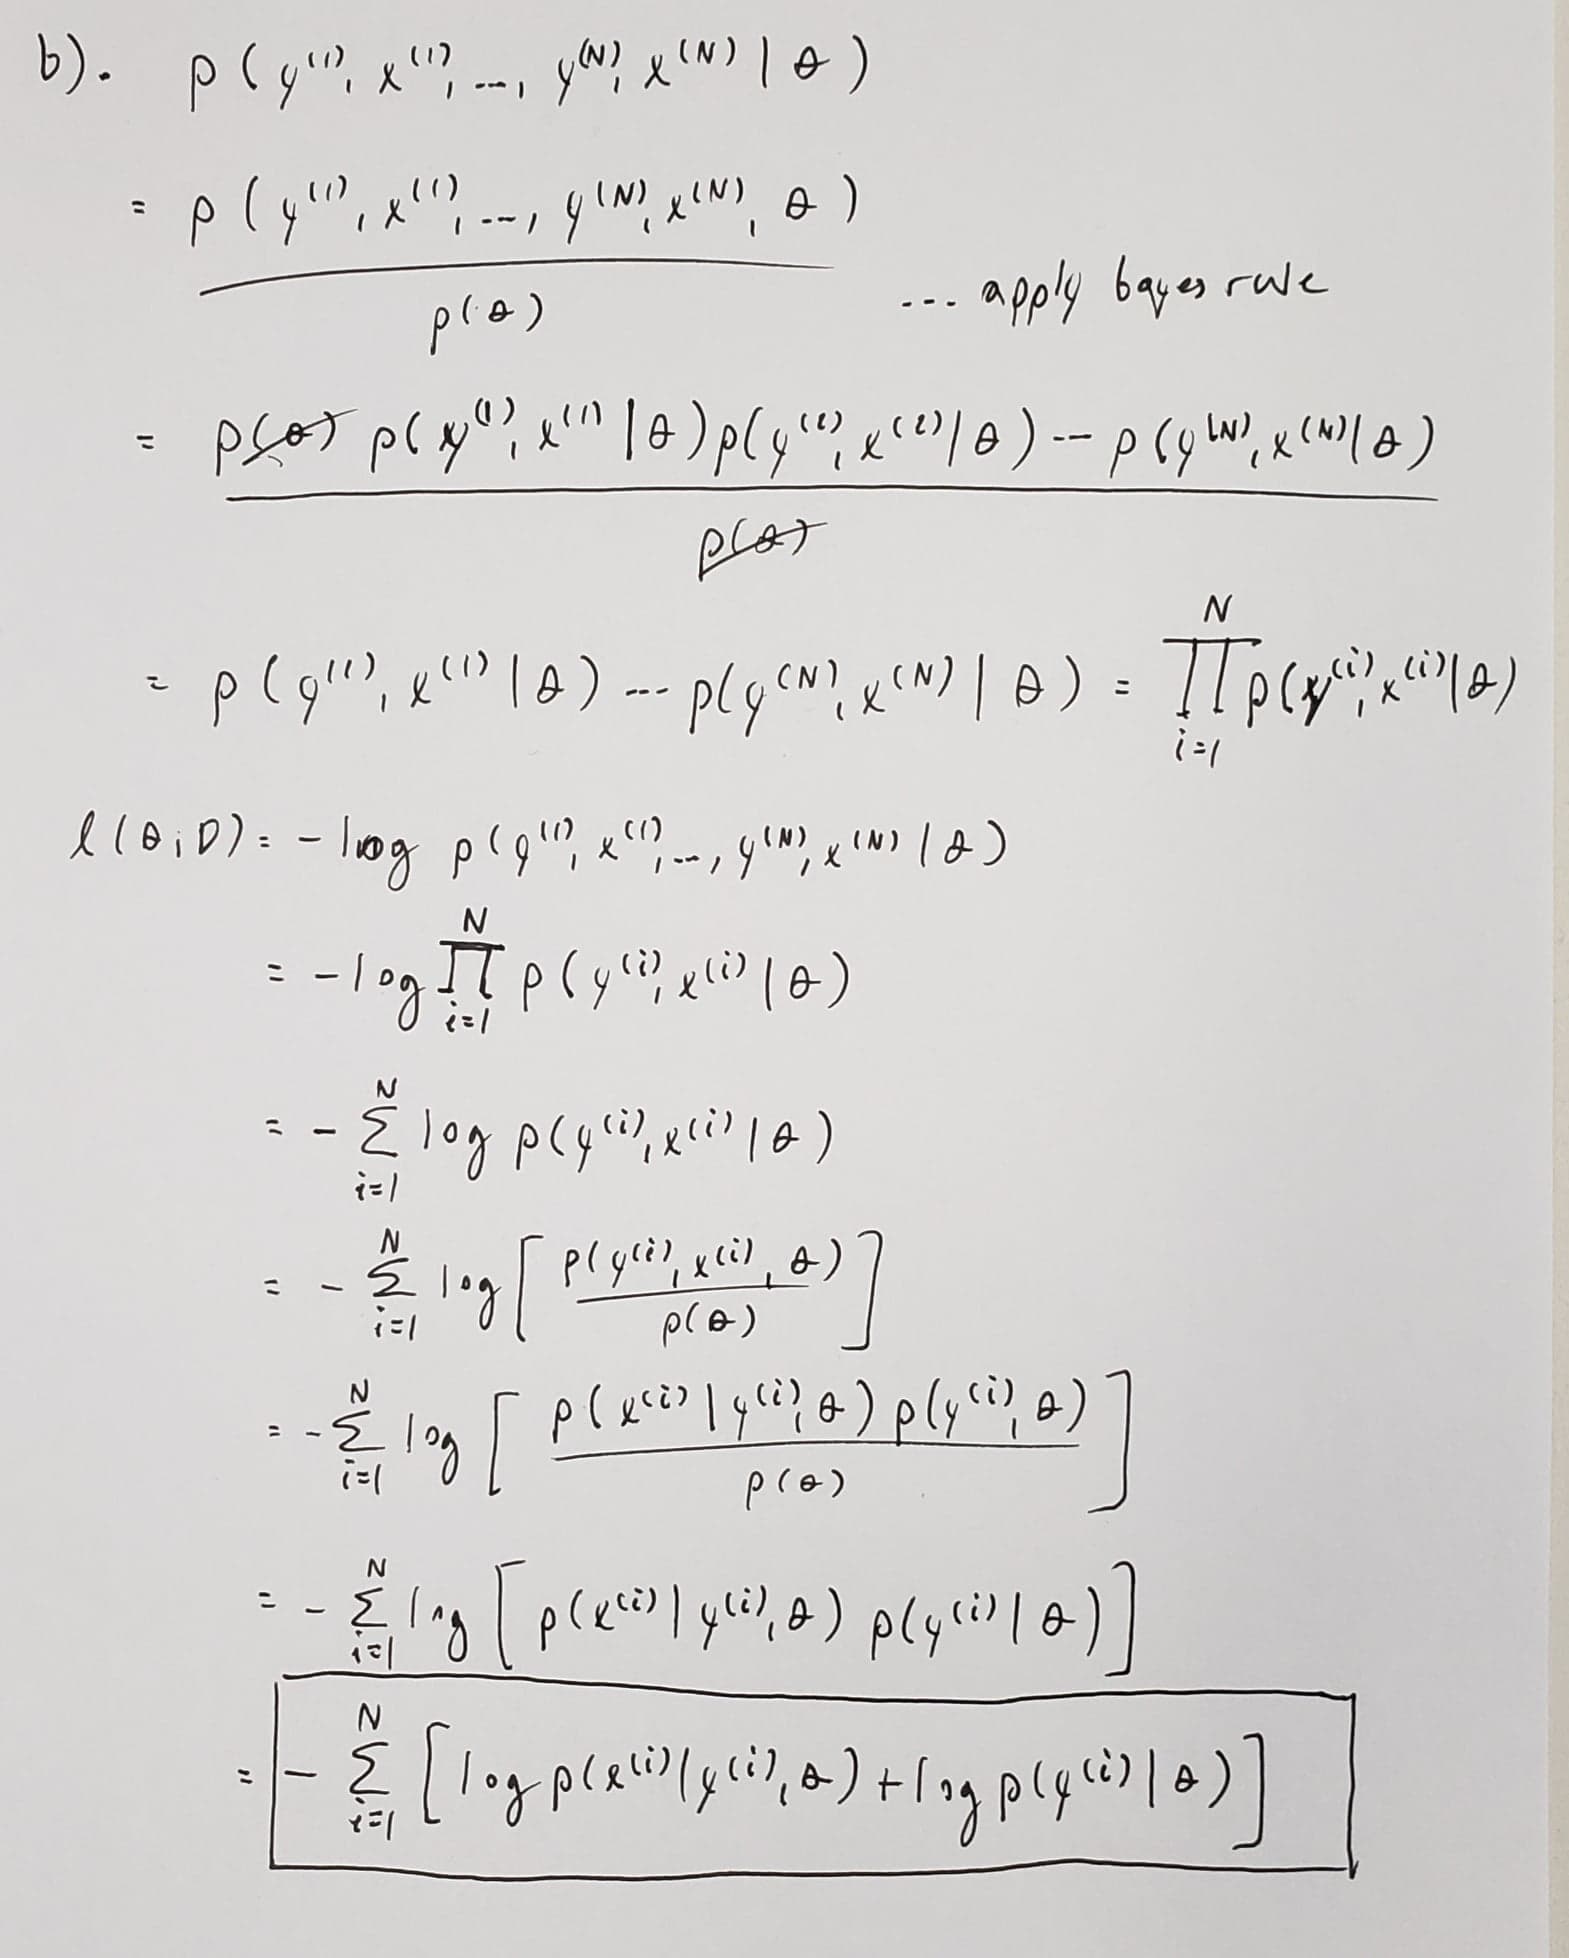 b). p(y⁽¹⁾, x⁽¹⁾, ---, y⁽ᴺ⁾, x⁽ᴺ⁾ | θ)
= p(y⁽¹⁾, x⁽¹⁾, ---, y⁽ᴺ⁾, x⁽ᴺ⁾, θ)
p(θ)
--- apply bayes rule
= p(θ) p(y⁽¹⁾, x⁽¹⁾ | θ) p(y⁽²⁾, x⁽²⁾ | θ) -- p(y⁽ᴺ⁾, x⁽ᴺ⁾ | θ)
p(θ)
= p(y⁽¹⁾, x⁽¹⁾ | θ) --- p(y⁽ᴺ⁾, x⁽ᴺ⁾ | θ) = ∏_{i=1}^{N} p(y⁽ⁱ⁾, x⁽ⁱ⁾ | θ)
ℓ(θ; D) = - log p(y⁽¹⁾, x⁽¹⁾, --, y⁽ᴺ⁾, x⁽ᴺ⁾ | θ)
= - log ∏_{i=1}^{N} p(y⁽ⁱ⁾, x⁽ⁱ⁾ | θ)
= - Σ_{i=1}^{N} log p(y⁽ⁱ⁾, x⁽ⁱ⁾ | θ)
= - Σ_{i=1}^{N} log [ p(y⁽ⁱ⁾, x⁽ⁱ⁾, θ) / p(θ) ]
= - Σ_{i=1}^{N} log [ p(x⁽ⁱ⁾ | y⁽ⁱ⁾, θ) p(y⁽ⁱ⁾, θ) / p(θ) ]
= - Σ_{i=1}^{N} log [ p(x⁽ⁱ⁾ | y⁽ⁱ⁾, θ) p(y⁽ⁱ⁾ | θ) ]
= - Σ_{i=1}^{N} [ log p(x⁽ⁱ⁾ | y⁽ⁱ⁾, θ) + log p(y⁽ⁱ⁾ | θ) ]